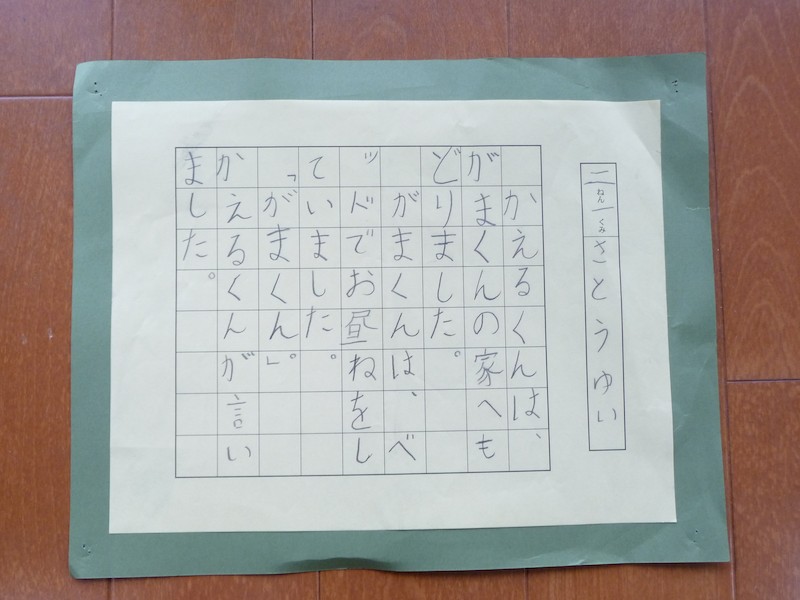 二ねん一くみさとうゆい
　かえるくんは、
がまくんの家へも
どりました。
　がまくんは、べ
ッドでお昼ねをし
ていました。
「がまくん。」
かえるくんが言い
ました。